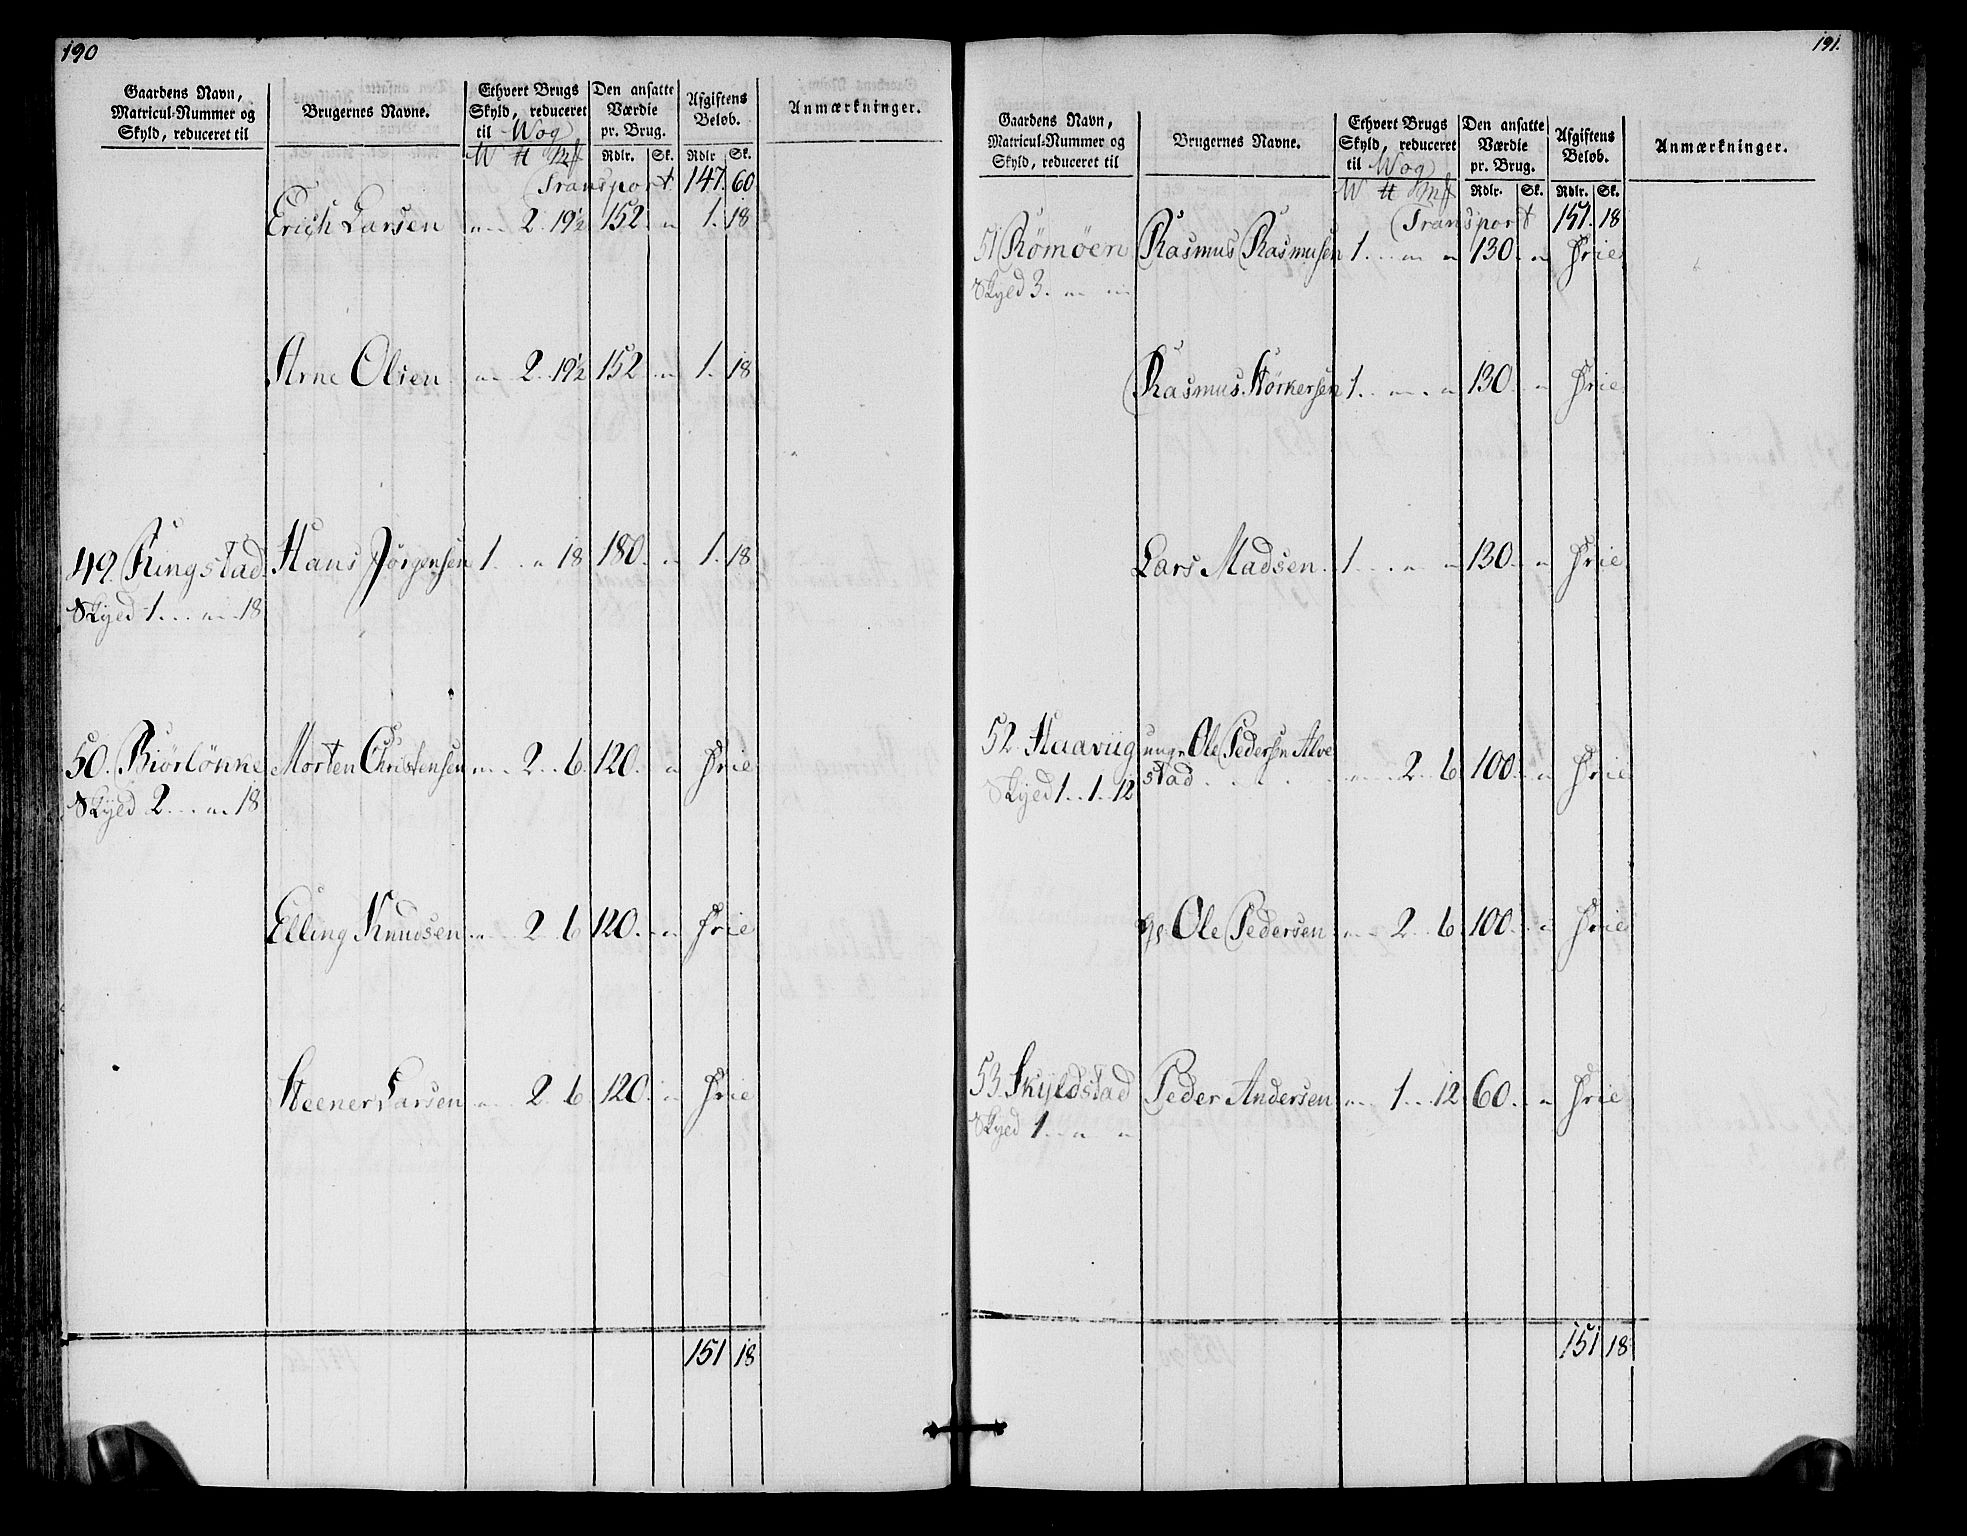 190
Gaardens Navn, Matricul-Nummer og Skyld, reduceret til
Brugernes Navne.
Ethvert Brugs Skyld, reduceret til Wog
W ℔ Mk
Den ansatte Værdie pr. Brug.
Rdlr. Sk.
Afgiftens Beløb.
Rdlr Sk.
Anmærkninger.
Transport 147. 60
Erich Larsen „ 2. 19½ 152 „ 1. 18
Arne Olsen „ 2. 19½ 152 „ 1. 18
49 Ringstad Hans Jörgensen 1. „ 18 180. „ 1. 18
Skyld 1. „ 18
50. Biörlönne Morten Christensen „ 2. 6. 120. „ Frie
Skyld 2. „ 18
Elling Knudsen „ 2. 6 120. „ Frie
Steener Larsen „ 2. 6 120. „ Frie
151 18
191.
Gaardens Navn, Matricul-Nummer og Skyld, reduceret til
Brugernes Navne.
Ethvert Brugs Skyld, reduceret til Wog
W ℔ Mk
Den ansatte Værdie pr. Brug.
Rdlr. Sk.
Afgiftens Beløb.
Rdlr. Sk.
Anmærkninger.
Transport 151. 18
51 Römöen Rasmus Rasmusen 1. „ „ 130. „ Frie
Skyld 3. „ „
Rasmus Störkersen 1. „ „ 130. „ Frie
Lars Madsen. 1. „ „ 130. „ Frie
52 Haaviig unge Ole Pedersen Alve
Skyld 1. 1. 12 stad „ 2. 6 100. „ Frie
Ole Pedersen „ 2. 6 100. „ Frie
53. Skyldstad Peder Andersen „ 1. 12 60. „ Frie
Skyld 1. „ „
151 18